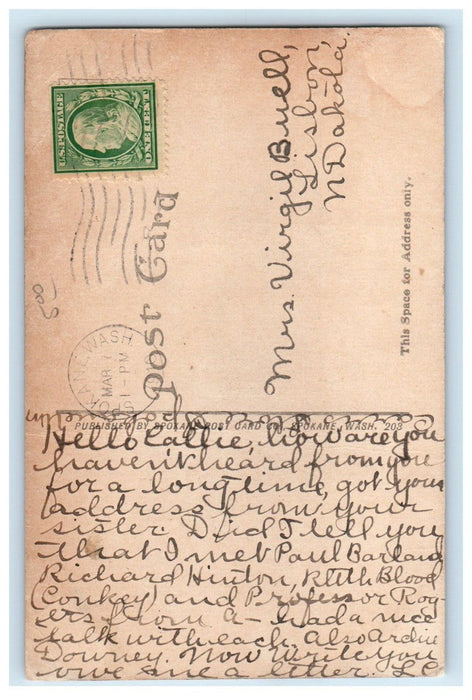 U.S. POSTAGE
ONE CENT
Post Card
SPOKANE, WASH.
MAR 7
1-PM
Mrs. Virgil Buell,
Lisbon,
N Dakota.
This Space for Address only.
PUBLISHED BY SPOKANE POST CARD CO., SPOKANE, WASH. 203
Hello Callie, How are you
haven't heard from you
for a long time, got your
address from your
sister. Did I tell you
that I met Paul
Richard Hinton, Ruth Blood
(Conkey) and Professor Rog-
ers from a- had a nice
talk with each. Also Ardie
Downey. Now write you
owe me a letter. L C